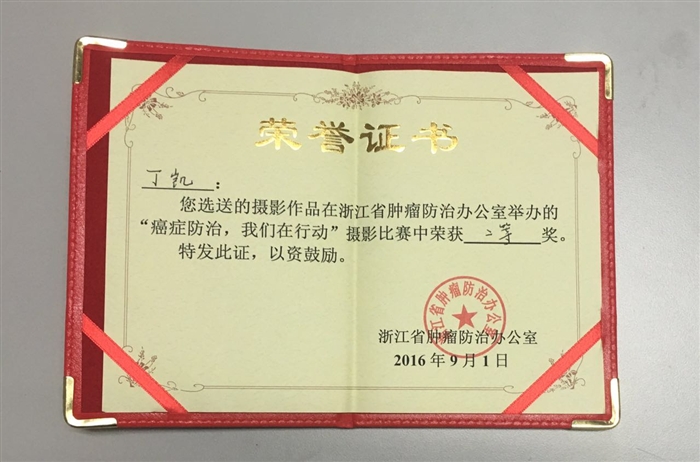 荣誉证书
丁凯：
您选送的摄影作品在浙江省肿瘤防治办公室举办的
“癌症防治，我们在行动”摄影比赛中荣获 二等 奖。
特发此证，以资鼓励。
浙江省肿瘤防治办公室
浙江省肿瘤防治办公室
2016年9月1日